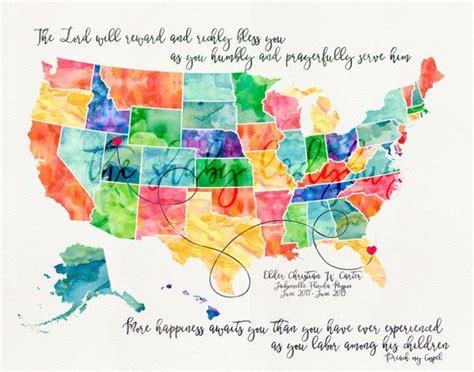 The Lord will reward and richly bless you
as you humbly and prayerfully serve him
the
Elder Christian W. Carter
Jacksonville Florida Mission
June 2017 - June 2019
More happiness awaits you than you have ever experienced
as you labor among his children
Preach my Gospel